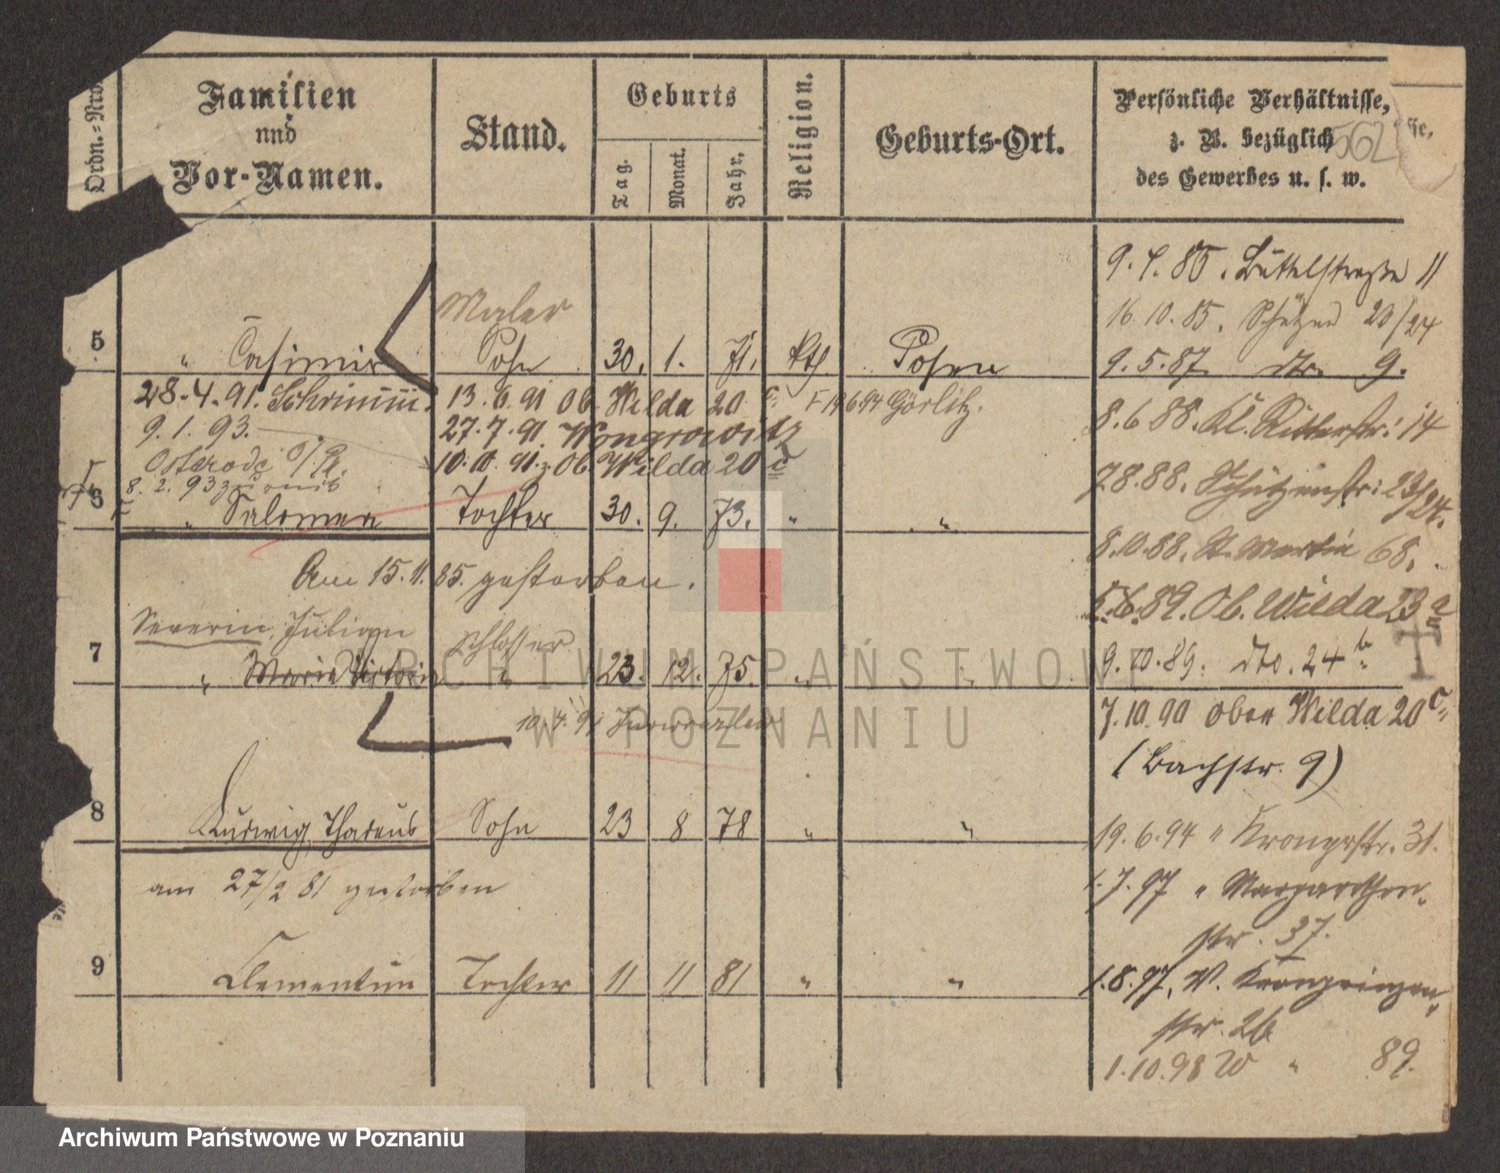 Ordn.=Nro.
Familien
und
Vor-Namen.
Stand.
Geburts
Tag.
Monat.
Jahr.
Religion.
Geburts-Ort.
Persönliche Verhältnisse,
z. B. bezüglich
des Gewerbes u. s. w.
562
9. 4. 85. Büttelstraße 11
16. 10. 85. Schützen 20/24
Maler
5 " Casimir Sohn 30. 1. 71. kth. Posen
9. 5. 87. dto. 9.
28. 4. 91. Schrimm. 13. 6. 91 Ob. Wilda 20 c. F 14 6 94 Görlitz.
8. 6 88. Kl. Ritterstr: 14
9. 1. 93. 27. 7. 91. Wongrowitz
Osterode 10. 10. 91. z. Ob. Wilda 20 c
8. 2. 93 zurück
7 8. 88. Schützenstr: 23/24.
6 " Salomea Tochter 30. 9. 73. " "
8. 10. 88. St. Martin 68.
Am 15. 11. 85. gestorben.
5. 6. 89. Ob. Wilda 23 a
Severin, Julian Schlosser
7 " Maria Victoria " 23. 12. 75. " "
9. 10. 89. dto. 24 b.
10. 4. 91 Inowrazlaw
7. 10. 90 Ober Wilda 20 c
(Bachstr. 9)
8 Ludwig Thadeus Sohn 23 8 78 " "
19. 6. 94 " Kronprstr. 31.
am 27/2 81 gestorben
1. 7. 97 " Margarethen-
str. 37.
9 Clementine Tochter 11 11 81 " "
1. 8. 97. W. Kronprinzen-
str. 26
1. 10. 98 W " 89.
ARCHIWUM PAŃSTWOWE
W POZNANIU
Archiwum Państwowe w Poznaniu